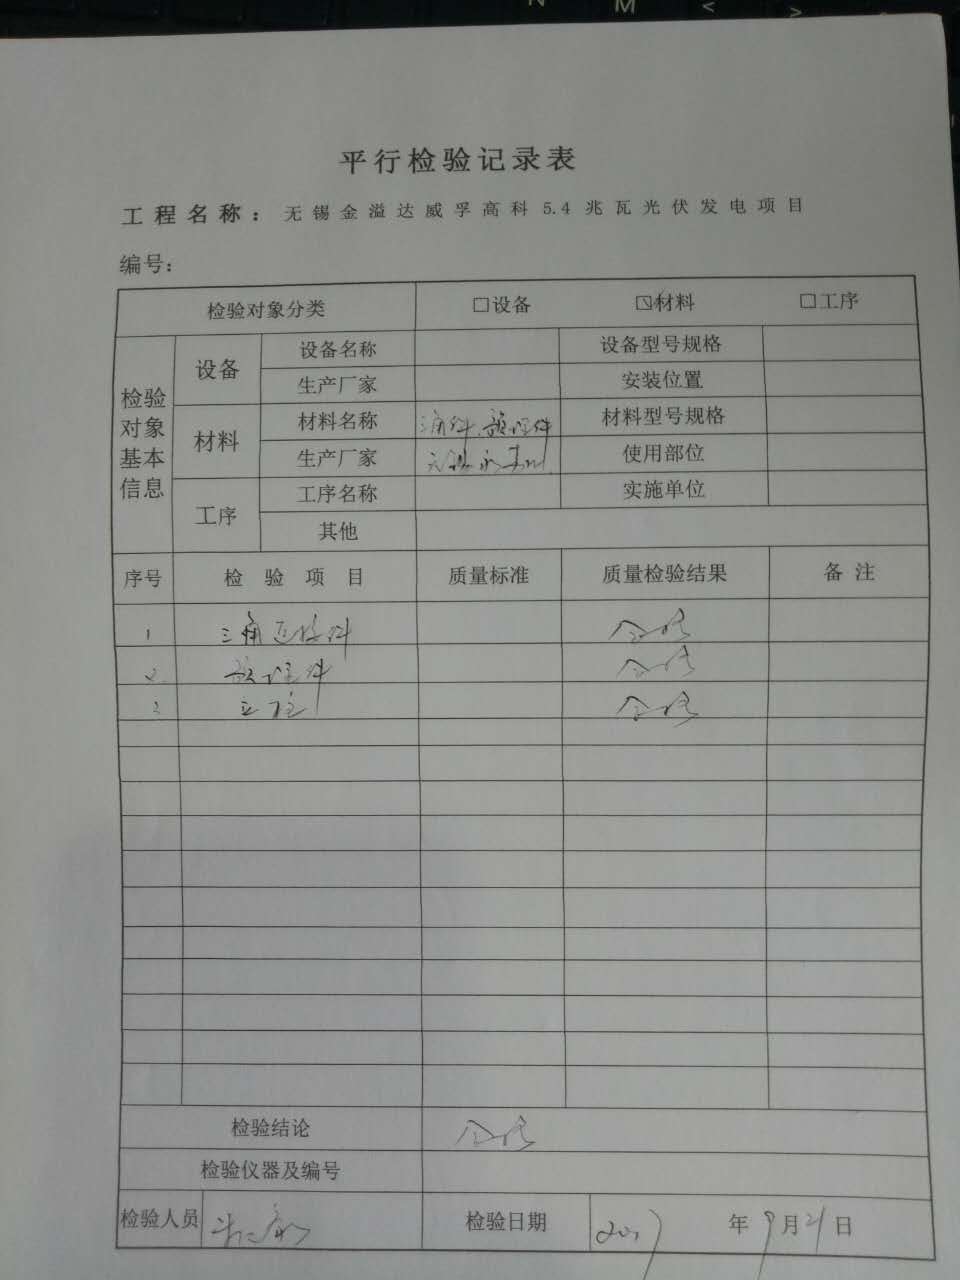 N M < >
平行检验记录表
工程名称：无锡金溢达威孚高科5.4兆瓦光伏发电项目
编号：
检验对象分类 □设备 ☑材料 □工序
检验对象基本信息
设备 设备名称 设备型号规格
生产厂家 安装位置
材料 材料名称 三角件、预埋件 材料型号规格
生产厂家 使用部位
工序 工序名称 实施单位
其他
序号 检验项目 质量标准 质量检验结果 备注
1 三角连接件 合格
2 预埋件 合格
3 立柱 合格
检验结论 合格
检验仪器及编号
检验人员 检验日期 2017年9月21日